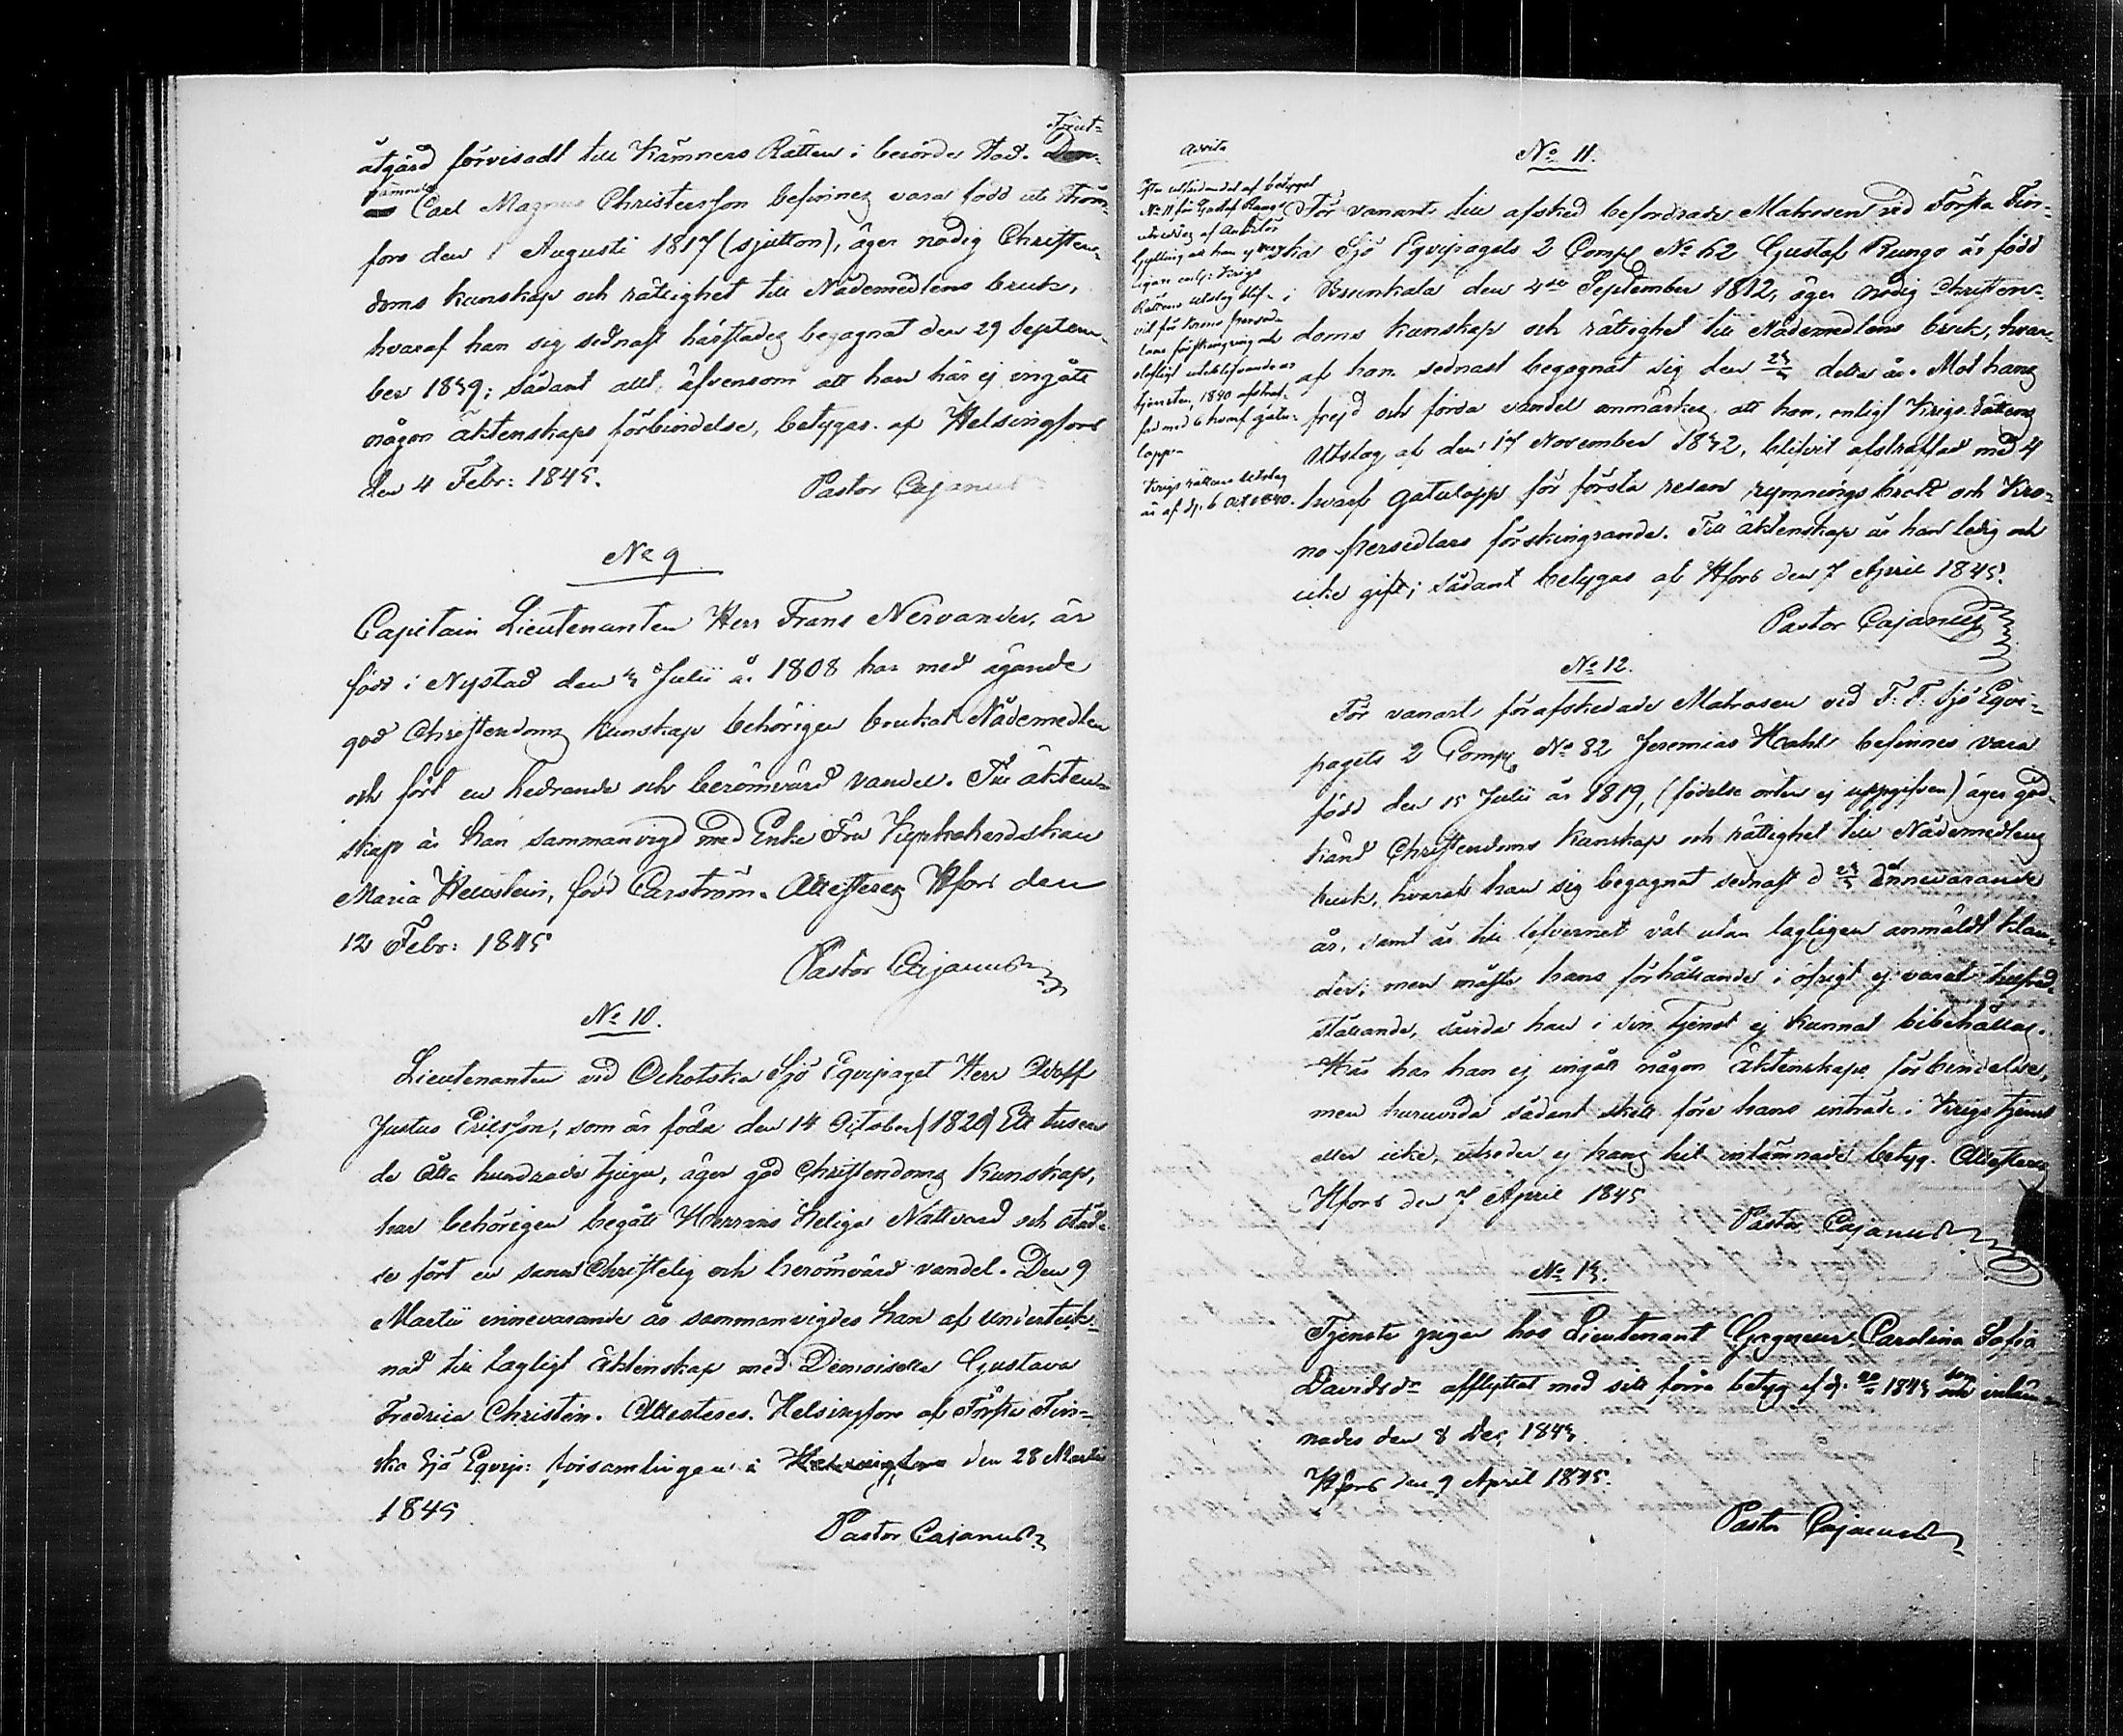 åtgärd förvisadt till Kämners Rätten i berörde stad. Först-
nämnde Carl Magnus Christersson befinnes vara född uti Ström-
fors den 1 Augusti 1817 (sjutton), äger nödig Christen-
doms kunskap och rättighet till Nådemedlens bruk,
hvaraf han sig sednast härstädes begagnat den 29 Septem-
ber 1839; sådant allt äfvensom att han här ej ingått
någon äktenskaps förbindelse, betygas af Helsingfors
den 4 Febr: 1845.
Pastor Cajanus
No 9
Capitain Lieutenanten Herr Frans Nervander, är
född i Nystad den 3 Julii år 1808 har med ägande
god Christendoms kunskap behörigen brukat Nådemedlen
och fört en hedrande och berömvärd vandel. Till äkten-
skap är han sammanvigd med Enke Fru
Maria född Carström. Attesteras Hfors den
12 Febr: 1845
Pastor Cajanus
No 10.
Lieutenanten vid Ochotska Sjö Equipaget Herr Adolf
Justus Ericsson, som är född den 14 October (1820) Ett tusen-
de Åtta hundrade tjugu, äger god Christendoms kunskap,
har behörigen begått Herrans Heliga Nattvard och städ-
se fört en sann Christelig och berömvärd vandel. Den 9
Martii innevarande år sammanvigdes han af underteck-
nad till lagligt äktenskap med Demoiselle Gustava
Fredrica Christin. Attesteres. Helsingfors af Första Fin-
ska Sjö Equip: församlingen i Helsingfors den 28 Martii
1845
Pastor Cajanus
No 11.
Efter utfärdandet af betyget
No 11 för Gustaf Rungo
Gyllling att han ej
egare enl: Krigs
Rättens utslag blif-
vit för Krono persed-
lars förskingring och
olofligt uteblifvande ur
tjensten, 1840 afstraf-
fad med 6 hvarf gatu-
lopp.
Krigs rättens utslag
är af d. 6 Oct 1840.
För vanart till afsked befordrade Matrosen vid Första Fin-
ska Sjö Equipagets 2 Comp No 62 Gustaf Rungo är född
i Brunkala den 4de September 1812, äger nödig Christen-
doms kunskap och rättighet till Nådemedlens bruk, hvar-
af han sednast begagnat sig den 23/3 detta år. Mot hans
frejd och förda vandel anmärkes, att han, enligt Krigs Rättens
Utslag af den 17 November 1832, blifvit afstraffad med 4
hvarf gatulopp för första resan rymnings brott och Kro-
no persedlars förskingrande. Till äktenskap är han ledig och
icke gift; sådant betygas af Hfors den 7 April 1845.
Pastor Cajanus
No 12.
För vanart förafskedade Matrosen vid F: F: Sjö Equi-
pagets 2 Comp No 82 Jeremias befinnes vara
född den 15 Julii år 1819, (födelse orten ej uppgifven) äger god-
känd Christendoms kunskap och rättighet till Nådemedlens
bruk, hvaraf han sig begagnat sednast d 23/3 innevarande
år, samt är till lefvernet väl utan lagligen anmäldt klan-
der; men måste hans förhållande i öfrigt ej varit tillfreds-
ställande, såvida han i sin tjenst ej kunnat bibehållas.
Här har han ej ingått någon äktenskaps förbindelse,
men huruvida sådant skett före hans inträde i Krigs tjenst
eller icke, utreder ej hans hit inlämnade betyg. Attesteras
Hfors den 7 April 1845
Pastor Cajanus
No 13.
Tjenste pigan hos Lieutenant Carolina Sofia
Davidsdr afflyttat med sitt förra betyg af d. 1843 som inläm-
nades den 8 Dec 1843
Hfors den 9 April 1845.
Pastor Cajanus